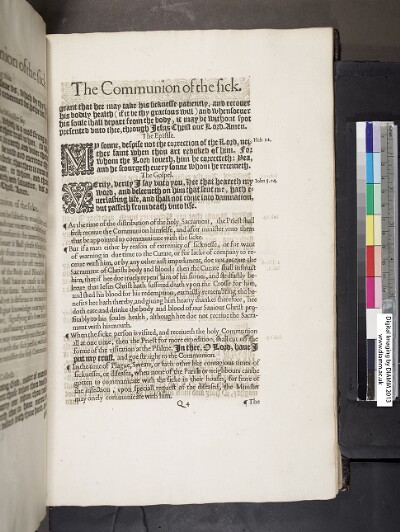 The Communion of the sick.
grant that hee may take his sicknesse patiently, and recouer
his bodily health (if it be thy gracious will) and whensoeuer
his soule shall depart from the body, it may be without spot
presented vnto thee, through Iesus Christ our Lord. Amen.
The Epistle.
MY sonne, despise not the correction of the Lord, nei-
ther faint when thou art rebuked of him. For
whom the Lord loueth, him he correcteth: yea,
and he scourgeth euery sonne whom he receiueth.
The Gospel.
VErily, verily I say vnto you, Hee that heareth my
word, and beleeueth on him that sent me, hath e-
uerlasting life, and shall not come into damnation,
but passeth from death vnto life.
¶ At the time of the distribution of the holy Sacrament, the Priest shall
first receiue the Communion himselfe, and after minister vnto them
that be appointed to communicate with the sicke.
¶ But if a man either by reason of extremity of sicknesse, or for want
of warning in due time to the Curate, or for lacke of company to re-
ceiue with him, or by any other iust impediment, doe not receiue the
Sacrament of Christs body and blood: then the Curate shall instruct
him, that if hee doe truely repent him of his sinnes, and stedfastly be-
leeue that Iesus Christ hath suffered death vpon the Crosse for him,
and shed his blood for his redemption, earnestly remembring the be-
nefits hee hath thereby, and giuing him hearty thankes therefore, hee
doth eate and drinke the body and blood of our Sauiour Christ pro-
fitably to his soules health, although hee doe not receiue the Sacra-
ment with his mouth.
¶ When the sicke person is visited, and receiueth the holy Communion
all at one time, then the Priest for more expedition, shall cut off the
forme of the visitation at the Psalme, In thee, O Lord, haue I
put my trust, and goe straight to the Communion.
¶ In the time of Plague, Sweat, or such other like contagious times of
sicknesses, or diseases, when none of the Parish or neighbours can be
gotten to communicate with the sicke in their houses, for feare of
the infection, vpon speciall request of the diseased, the Minister
may onely communicate with him.
Q 4
¶ The
Digital Imaging by DIAMM 2013
www.diamm.ac.uk